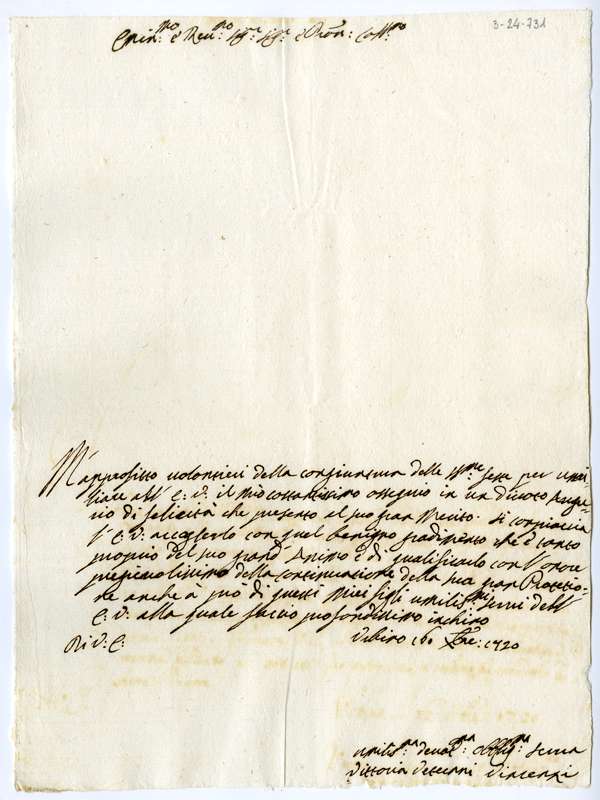 3-24-731
Emin:mo e Reu:mo Sig:re Sig:re e Pron: Col:mo
M'approfitto volontieri della congiuntura delle SS:me feste per umi-
liare all' E: V: il mio costantissimo ossequio in un divoto Augu-
rio di felicità che presento al suo gran Merito. Si compiaccia
l' E: V: accoglerlo con quel benigno gradimento che è tanto
proprio del suo grand' Animo e di qualificarlo con l'onore
pregievolissimo della continuazione della sua gran Protetio-
ne anche à prò di questi miei figli umilis:mi servi dell'
E: V: alla quale faccio profondissimo inchino
Di V: E:
Urbino 1720
umilis:ma devot:ma obblig:ma serva
Vittoria Vincenzi